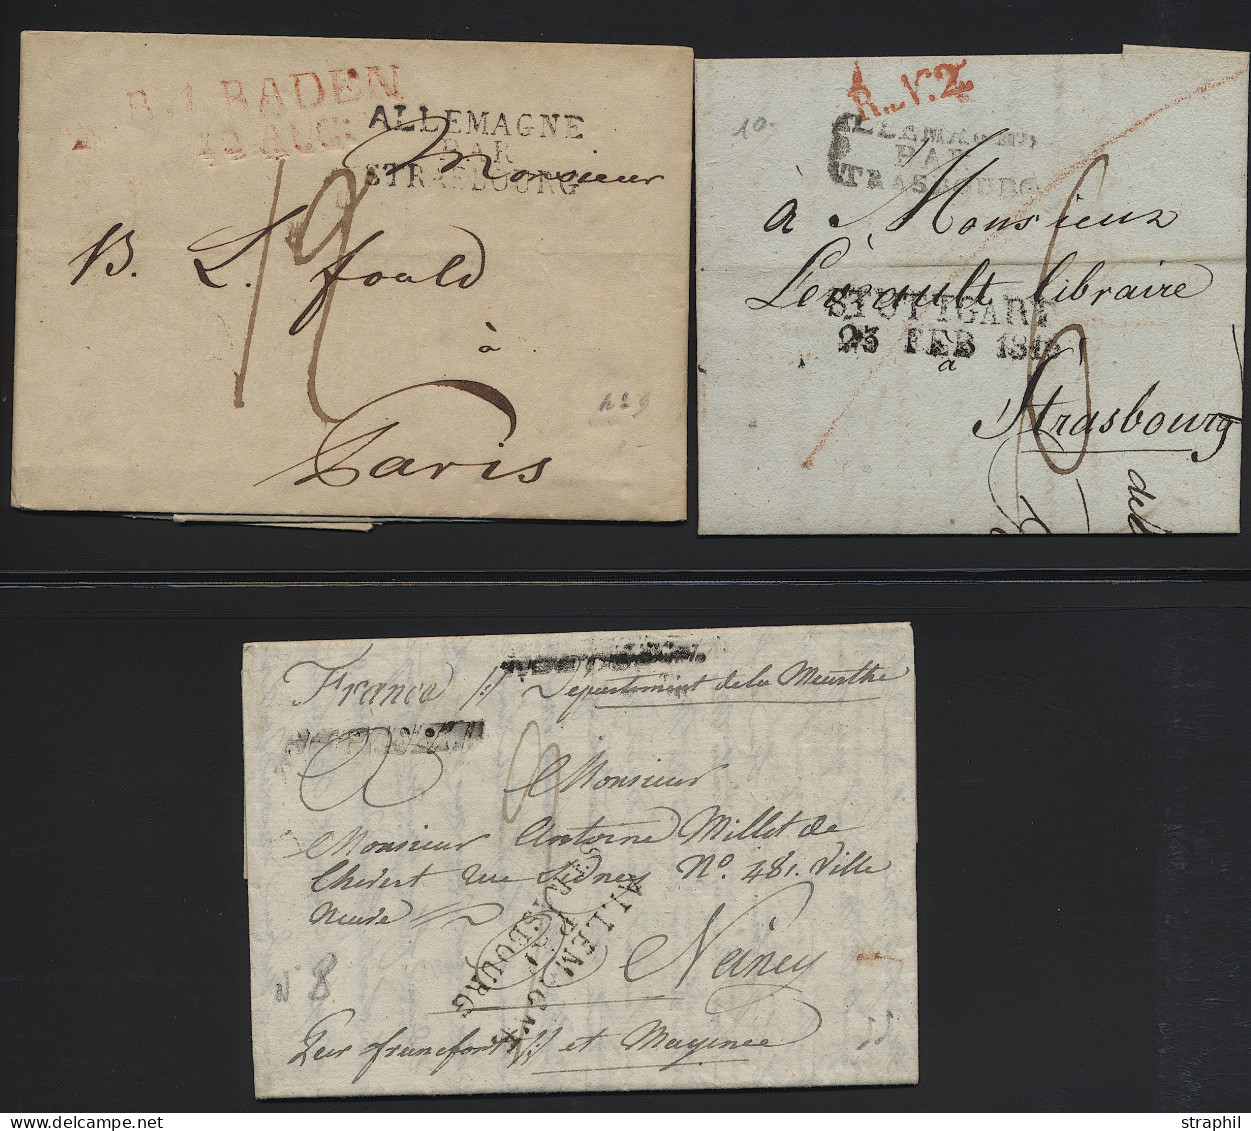 BADEN
ALLEMAGNE
PAR
STRASBOURG
Monsieur
B. L. fould
à
Paris
R.N.2.
PAR
à Monsieur
Levrault libraire
STUTTGART
23 FEB
à
Strasbourg
10-
France //: Département de la Meurthe
Monsieur
Monsieur Antoine Millet de
Chevert rue N° 481. Ville
Neuve
ALLEMAGNE
PAR
STRASBOURG
Nancy
N 8
Per francfort et Mayence
www.delcampe.net straphil